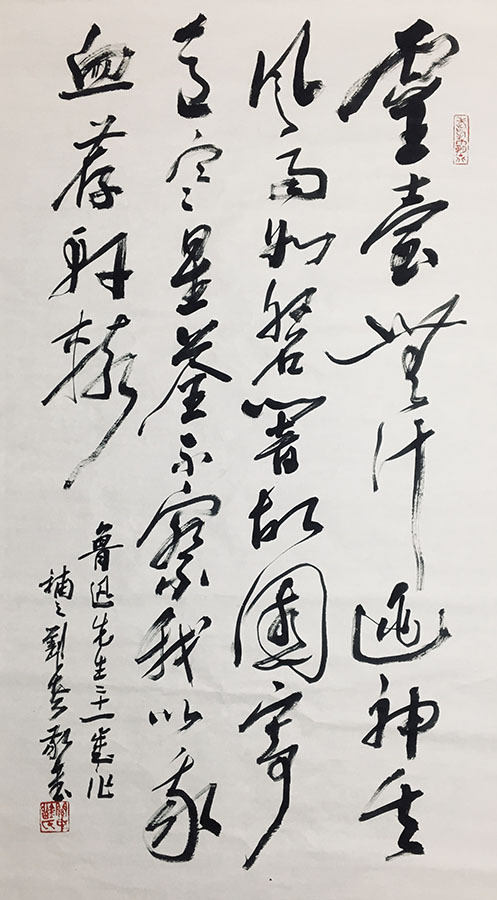 靈臺無計逃神矢
風雨如磐闇故園寄
意寒星荃不察我以我
血荐軒轅
魯迅先生二十一歲作
補之劉敬書